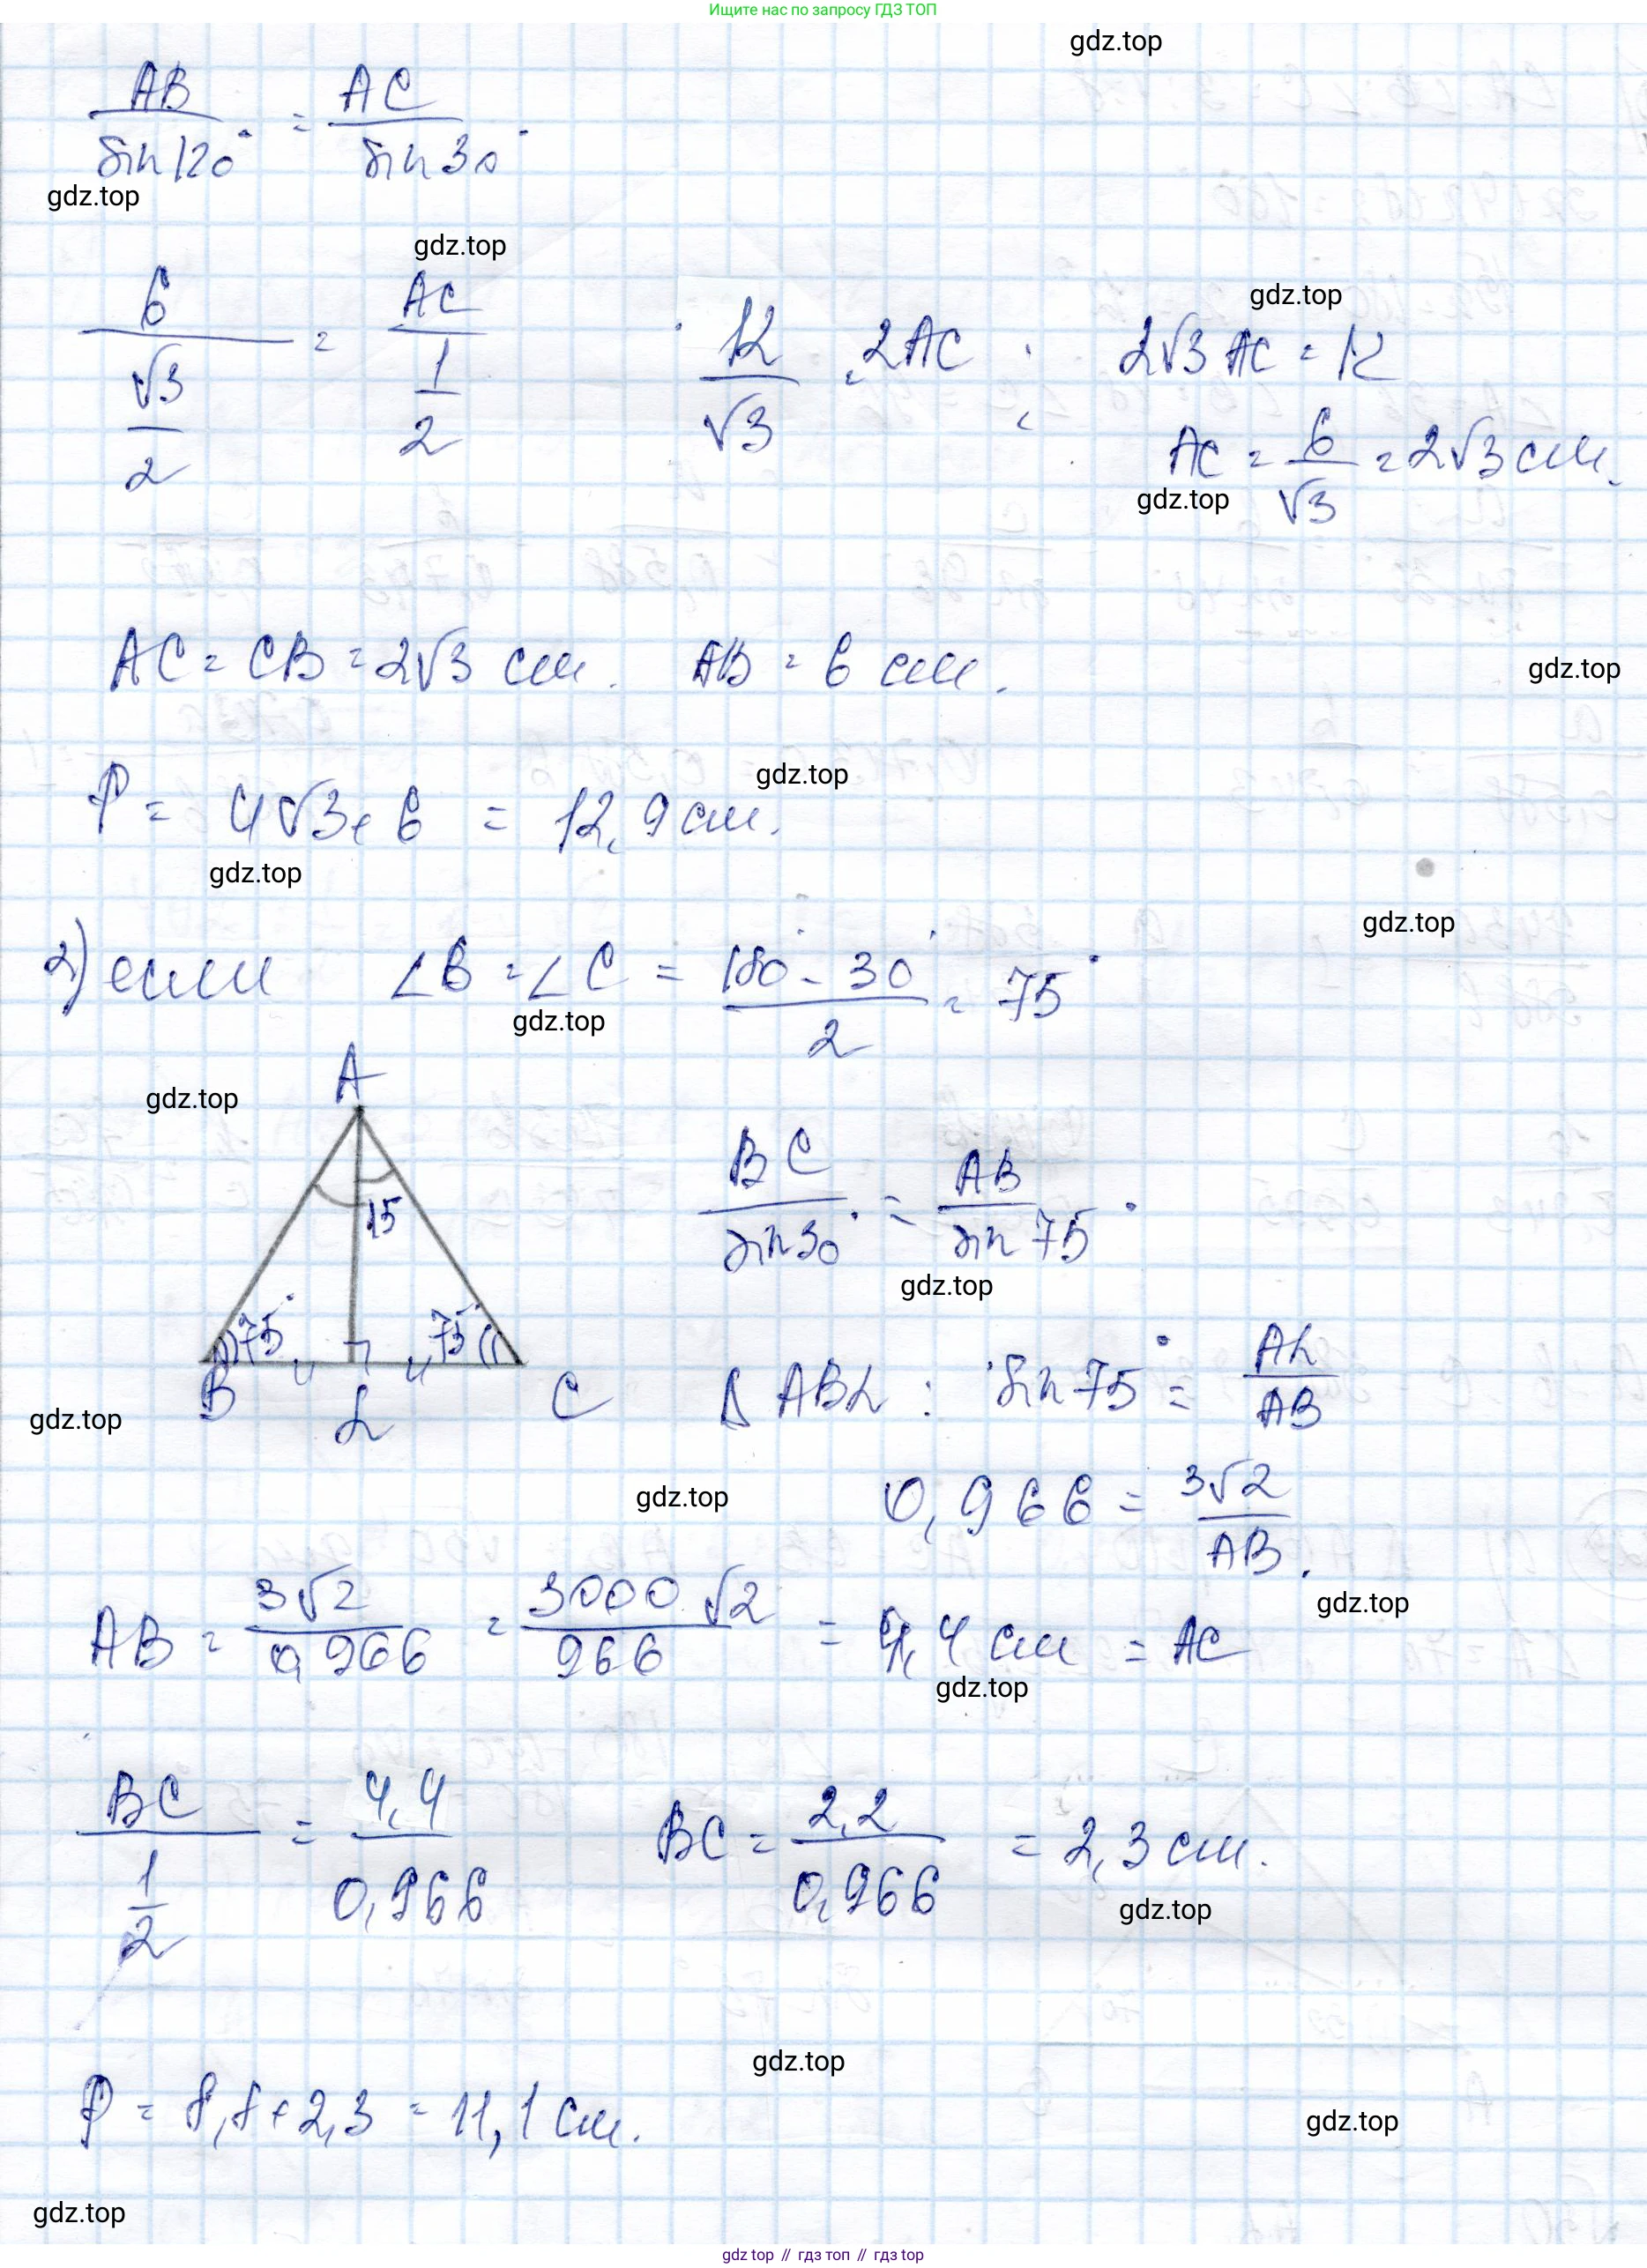 Ищите нас по запросу ГДЗ ТОП
gdz.top
AB/sin120° = AC/sin30°
gdz.top
gdz.top
gdz.top
6/(√3/2) = AC/(1/2) 12/√3 = 2AC ; 2√3 AC = 12
AC = 6/√3 = 2√3 см.
gdz.top
AC = CB = 2√3 см. AB = 6 см.
gdz.top
gdz.top
P = 4√3 + 6 = 12,9 см.
gdz.top
gdz.top
2) если ∠B = ∠C = (180° - 30°)/2 = 75°
gdz.top
A
gdz.top
15
75° 75°
B L C
BC/sin30° = AB/sin75°
gdz.top
Δ ABL : sin75° = AL/AB
gdz.top
gdz.top
0,966 = 3√2/AB.
AB = 3√2/0,966 = 3000√2/966 = 4,4 см = AC
gdz.top
gdz.top
BC/(1/2) = 4,4/0,966 BC = 2,2/0,966 = 2,3 см.
gdz.top
gdz.top
P = 8,8 + 2,3 = 11,1 см.
gdz.top
gdz.top
gdz top // гдз топ // гдз top